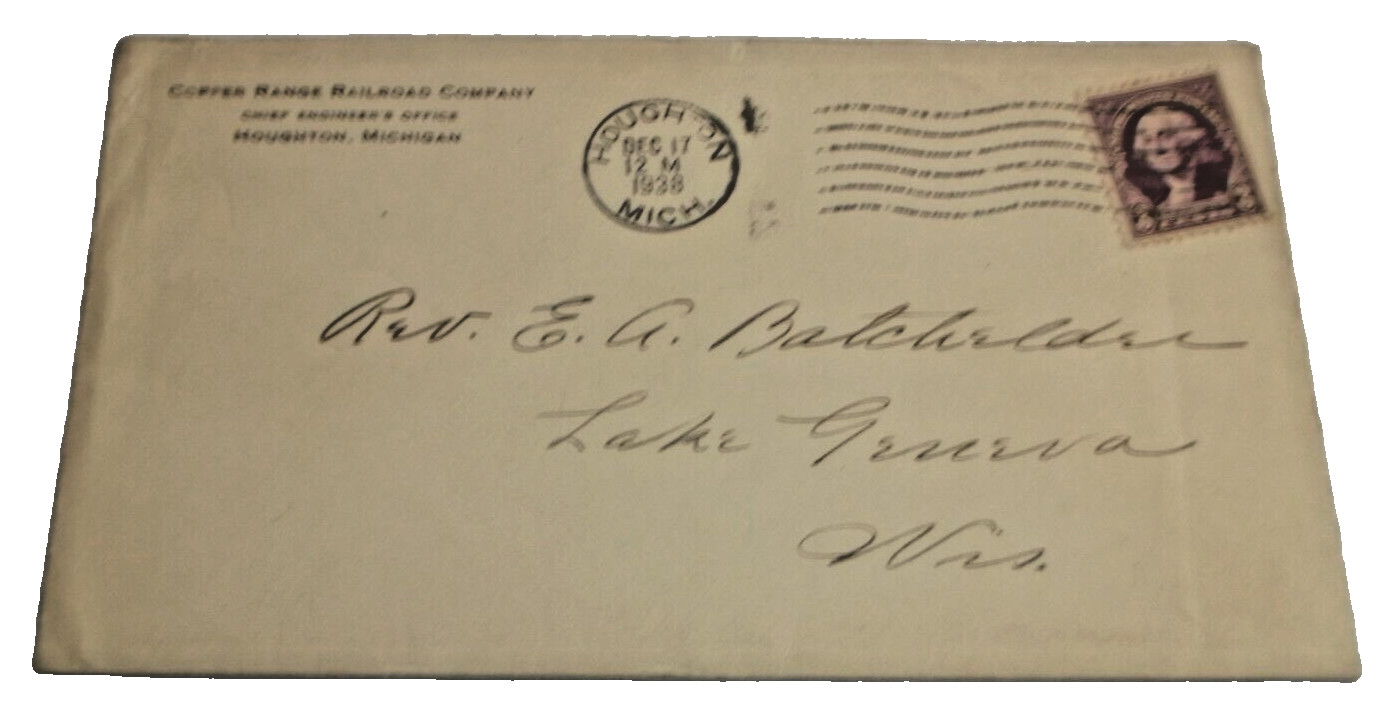 COPPER RANGE RAILROAD COMPANY
CHIEF ENGINEER'S OFFICE
HOUGHTON, MICHIGAN
HOUGHTON
DEC 17
12 M
1938
MICH.
3 3
Rev. E. A. Batchelder
Lake Geneva
Wis.